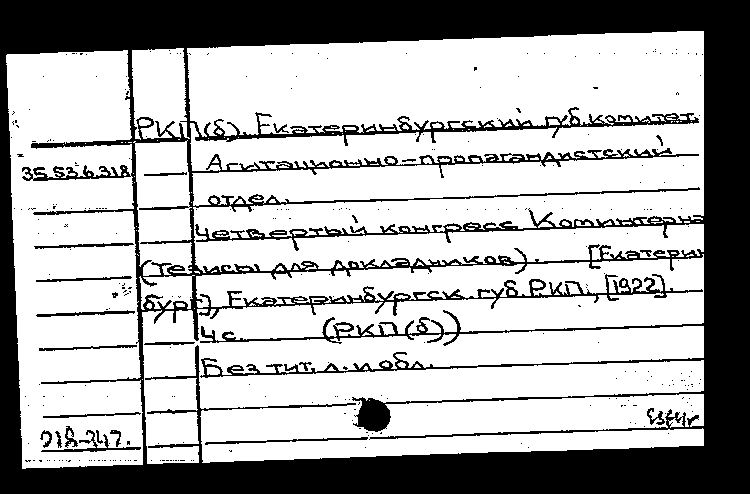 РКП(б). Екатеринбургский губ.комитет.
35.53.6.318 Агитационно-пропагандистский
отдел.
Четвертый конгресс Коминтерна
(тезисы для докладчиков). [Екатерин
бург], Екатеринбургск. губ. РКП, [1922].
4 с. (РКП(б))
Без тит. л. и обл.